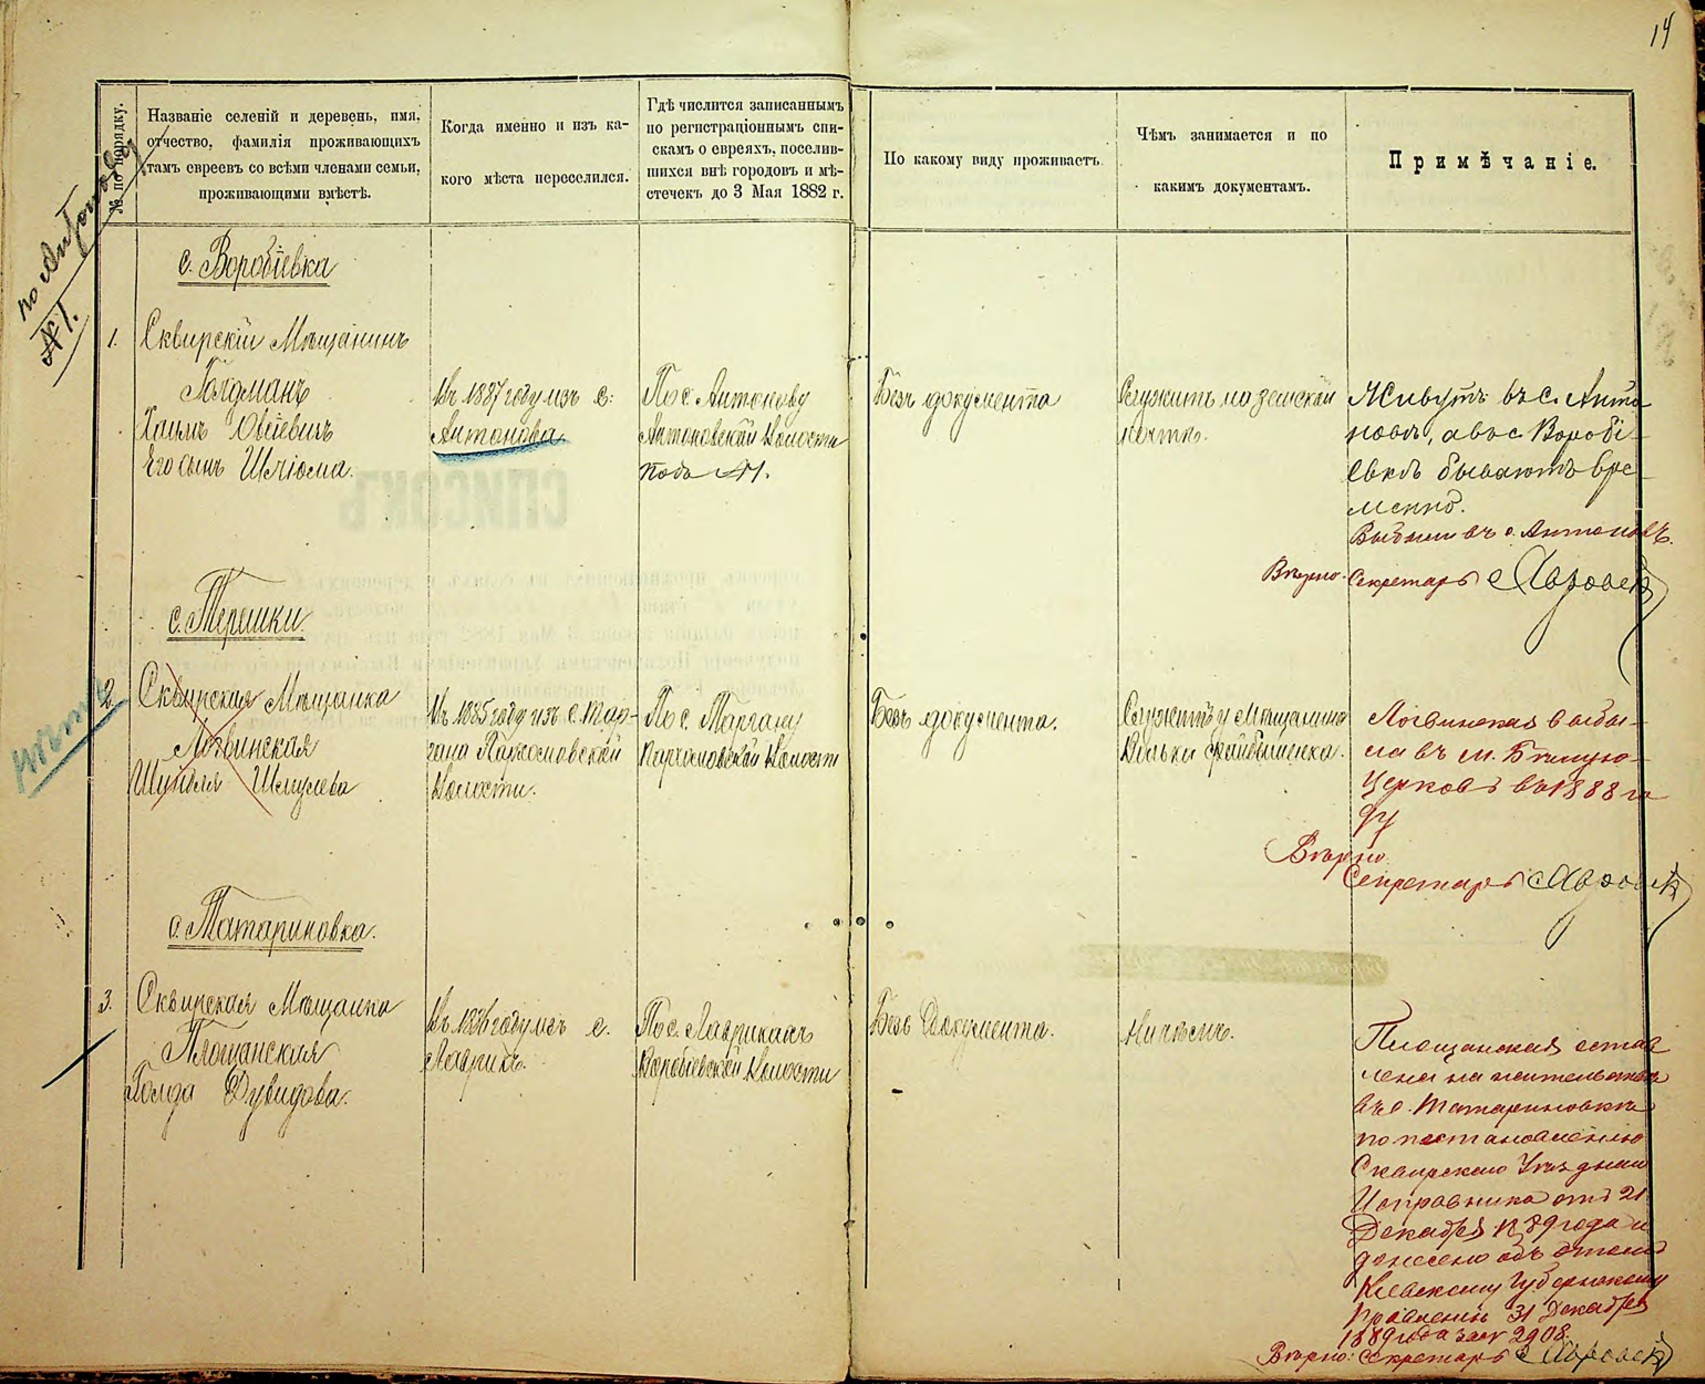 14
№ по порядку.
Названіе селеній и деревень, имя,
отчество, фамилія проживающихъ
тамъ евреевъ со всѣми членами семьи,
проживающими вмѣстѣ.
Когда именно и изъ ка-
кого мѣста переселился.
Гдѣ числится записаннымъ
по регистраціоннымъ спи-
скамъ о евреяхъ, поселив-
шихся внѣ городовъ и мѣ-
стечекъ до 3 Мая 1882 г.
По какому виду проживаетъ.
Чѣмъ занимается и по
какимъ документамъ.
Примѣчаніе.
по Антонову
№ 1.
с. Воробіевка
1.
Сквирскій Мѣщанинъ
Голдманъ
Хаимъ Овсіевичъ
Его сынъ Шліома.
Въ 1887 году изъ с.
Антонова
По с. Антонову
Антоновской Волости
подъ №1.
Безъ документа
Служитъ на земской
почтѣ.
Живутъ въ с. Анто
новѣ, а въ с. Воробі-
евкѣ бываютъ вре-
менно.
Выбыли въ с. Антоновъ.
Вѣрно: Секретарь
с. Терешки
2.
Сквирская Мѣщанка
Логвинская
Шмулева
Въ 1885 году изъ с. Тор-
гана Пархомовской
Волости.
По с. Торгану
Пархомовской Волости
Безъ документа.
Служитъ у Мѣщанина
Логвинская выбы-
ла въ м. Бѣлую-
Церковь въ 1888 го
ду
Вѣрно
Секретарь
с. Татариновка.
3.
Сквирская Мѣщанка
Площанская
Голда Дувидова.
Въ 1886 году изъ с.
Лаврик.
По с. Лаврикамъ
Воробіевской Волости
Безъ Документа.
Ничѣмъ.
Площанская остав
лена на жительство
въ с. Татариновкѣ
по постановленію
Сквирскаго Уѣзднаго
Исправника отъ 21
Декабря 1889 года и
донесено объ этомъ
Кіевскому Губернскому
Правленію 31 Декабря
1889 года за № 2908.
Вѣрно: Секретарь
СПИСОКЪ